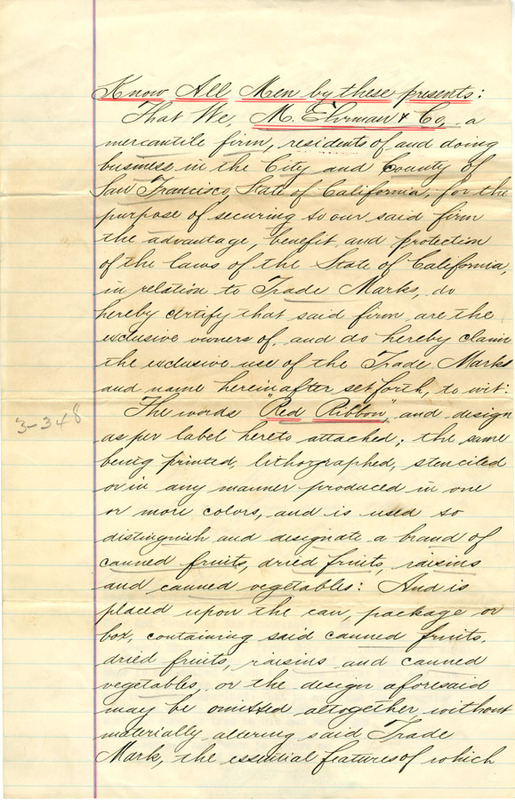 Know All Men by these presents:
That We, M. Ehrman & Co, a
mercantile firm, residents of and doing
business in the City and County of
San Francisco, State of California, for the
purpose of securing to our said firm
the advantage, benefit and protection
of the laws of the State of California,
in relation to Trade Marks, do
hereby certify that said firm are the
exclusive owners of, and do hereby claim
the exclusive use of the Trade Marks
and name hereinafter set forth, to wit:
The words "Red Ribbon", and design
3-348
as per label hereto attached; the same
being printed, lithographed, stenciled
or in any manner produced in one
or more colors, and is used to
distinguish and designate a brand of
canned fruits, dried fruits, raisins
and canned vegetables: And is
placed upon the can, package or
box, containing said canned fruits,
dried fruits, raisins and canned
vegetables, or the design aforesaid
may be omitted altogether without
materially altering said Trade
Mark, the essential features of which